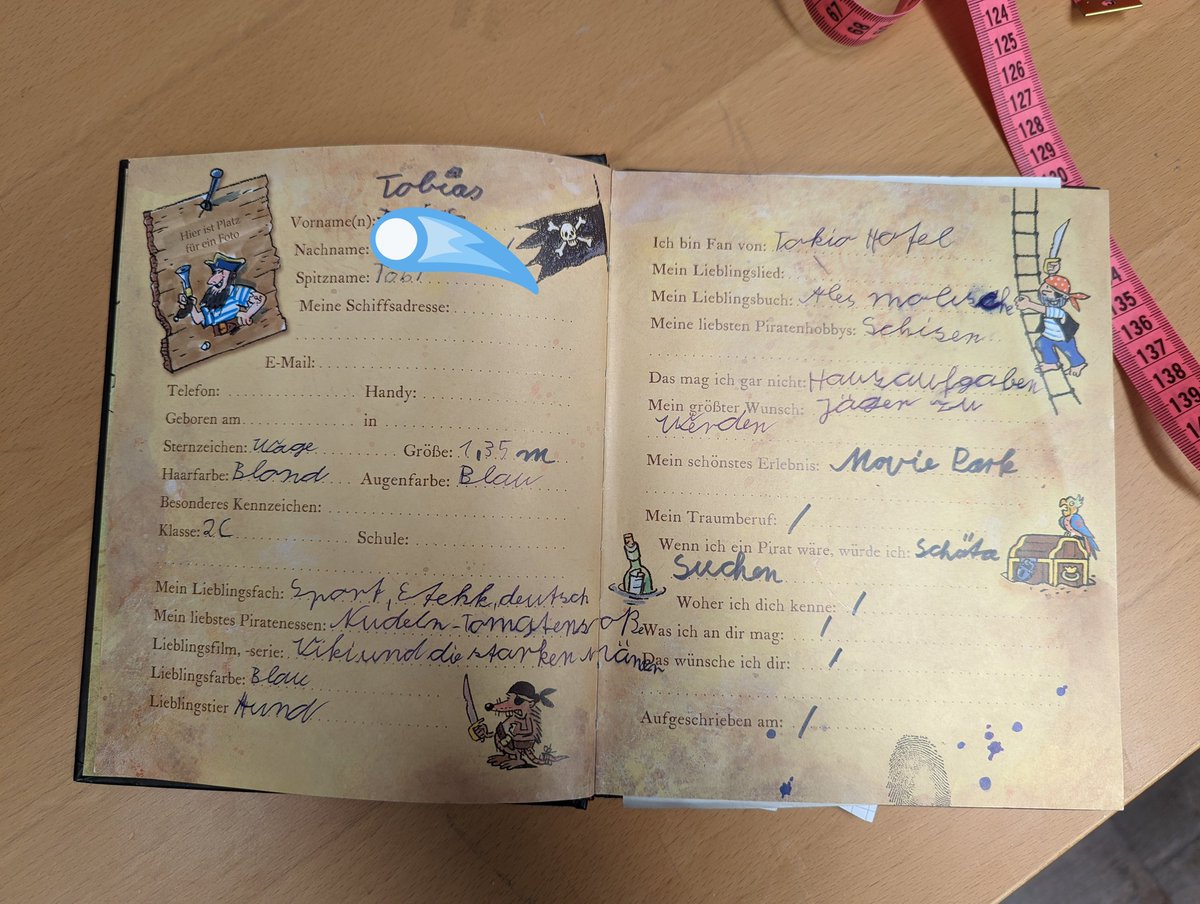 Hier ist Platz
für ein Foto
Tobias
Vorname(n):
Nachname:
Spitzname: Tobi
Meine Schiffsadresse:
E-Mail:
Telefon: Handy:
Geboren am in
Sternzeichen: Wage Größe: 1,35 m
Haarfarbe: Blond Augenfarbe: Blau
Besonderes Kennzeichen:
Klasse: 2C Schule:
Mein Lieblingsfach: Sport, Etehk, deutsch
Mein liebstes Piratenessen: Nudeln-Tomatensoße
Lieblingsfilm, -serie: Viki und die starken Mänen
Lieblingsfarbe: Blau
Lieblingstier Hund
Ich bin Fan von: Tokio Hotel
Mein Lieblingslied:
Mein Lieblingsbuch: Ales molische
Meine liebsten Piratenhobbys: Schisen
Das mag ich gar nicht: Hauzaufgaben
Mein größter Wunsch: Jäger zu
werden
Mein schönstes Erlebnis: Movie Park
Mein Traumberuf: /
Wenn ich ein Pirat wäre, würde ich: Schäta
Suchen
Woher ich dich kenne: /
Was ich an dir mag: /
Das wünsche ich dir: /
Aufgeschrieben am: /
67
68
124
125
126
127
128
129
130
134
135
136
137
138
139